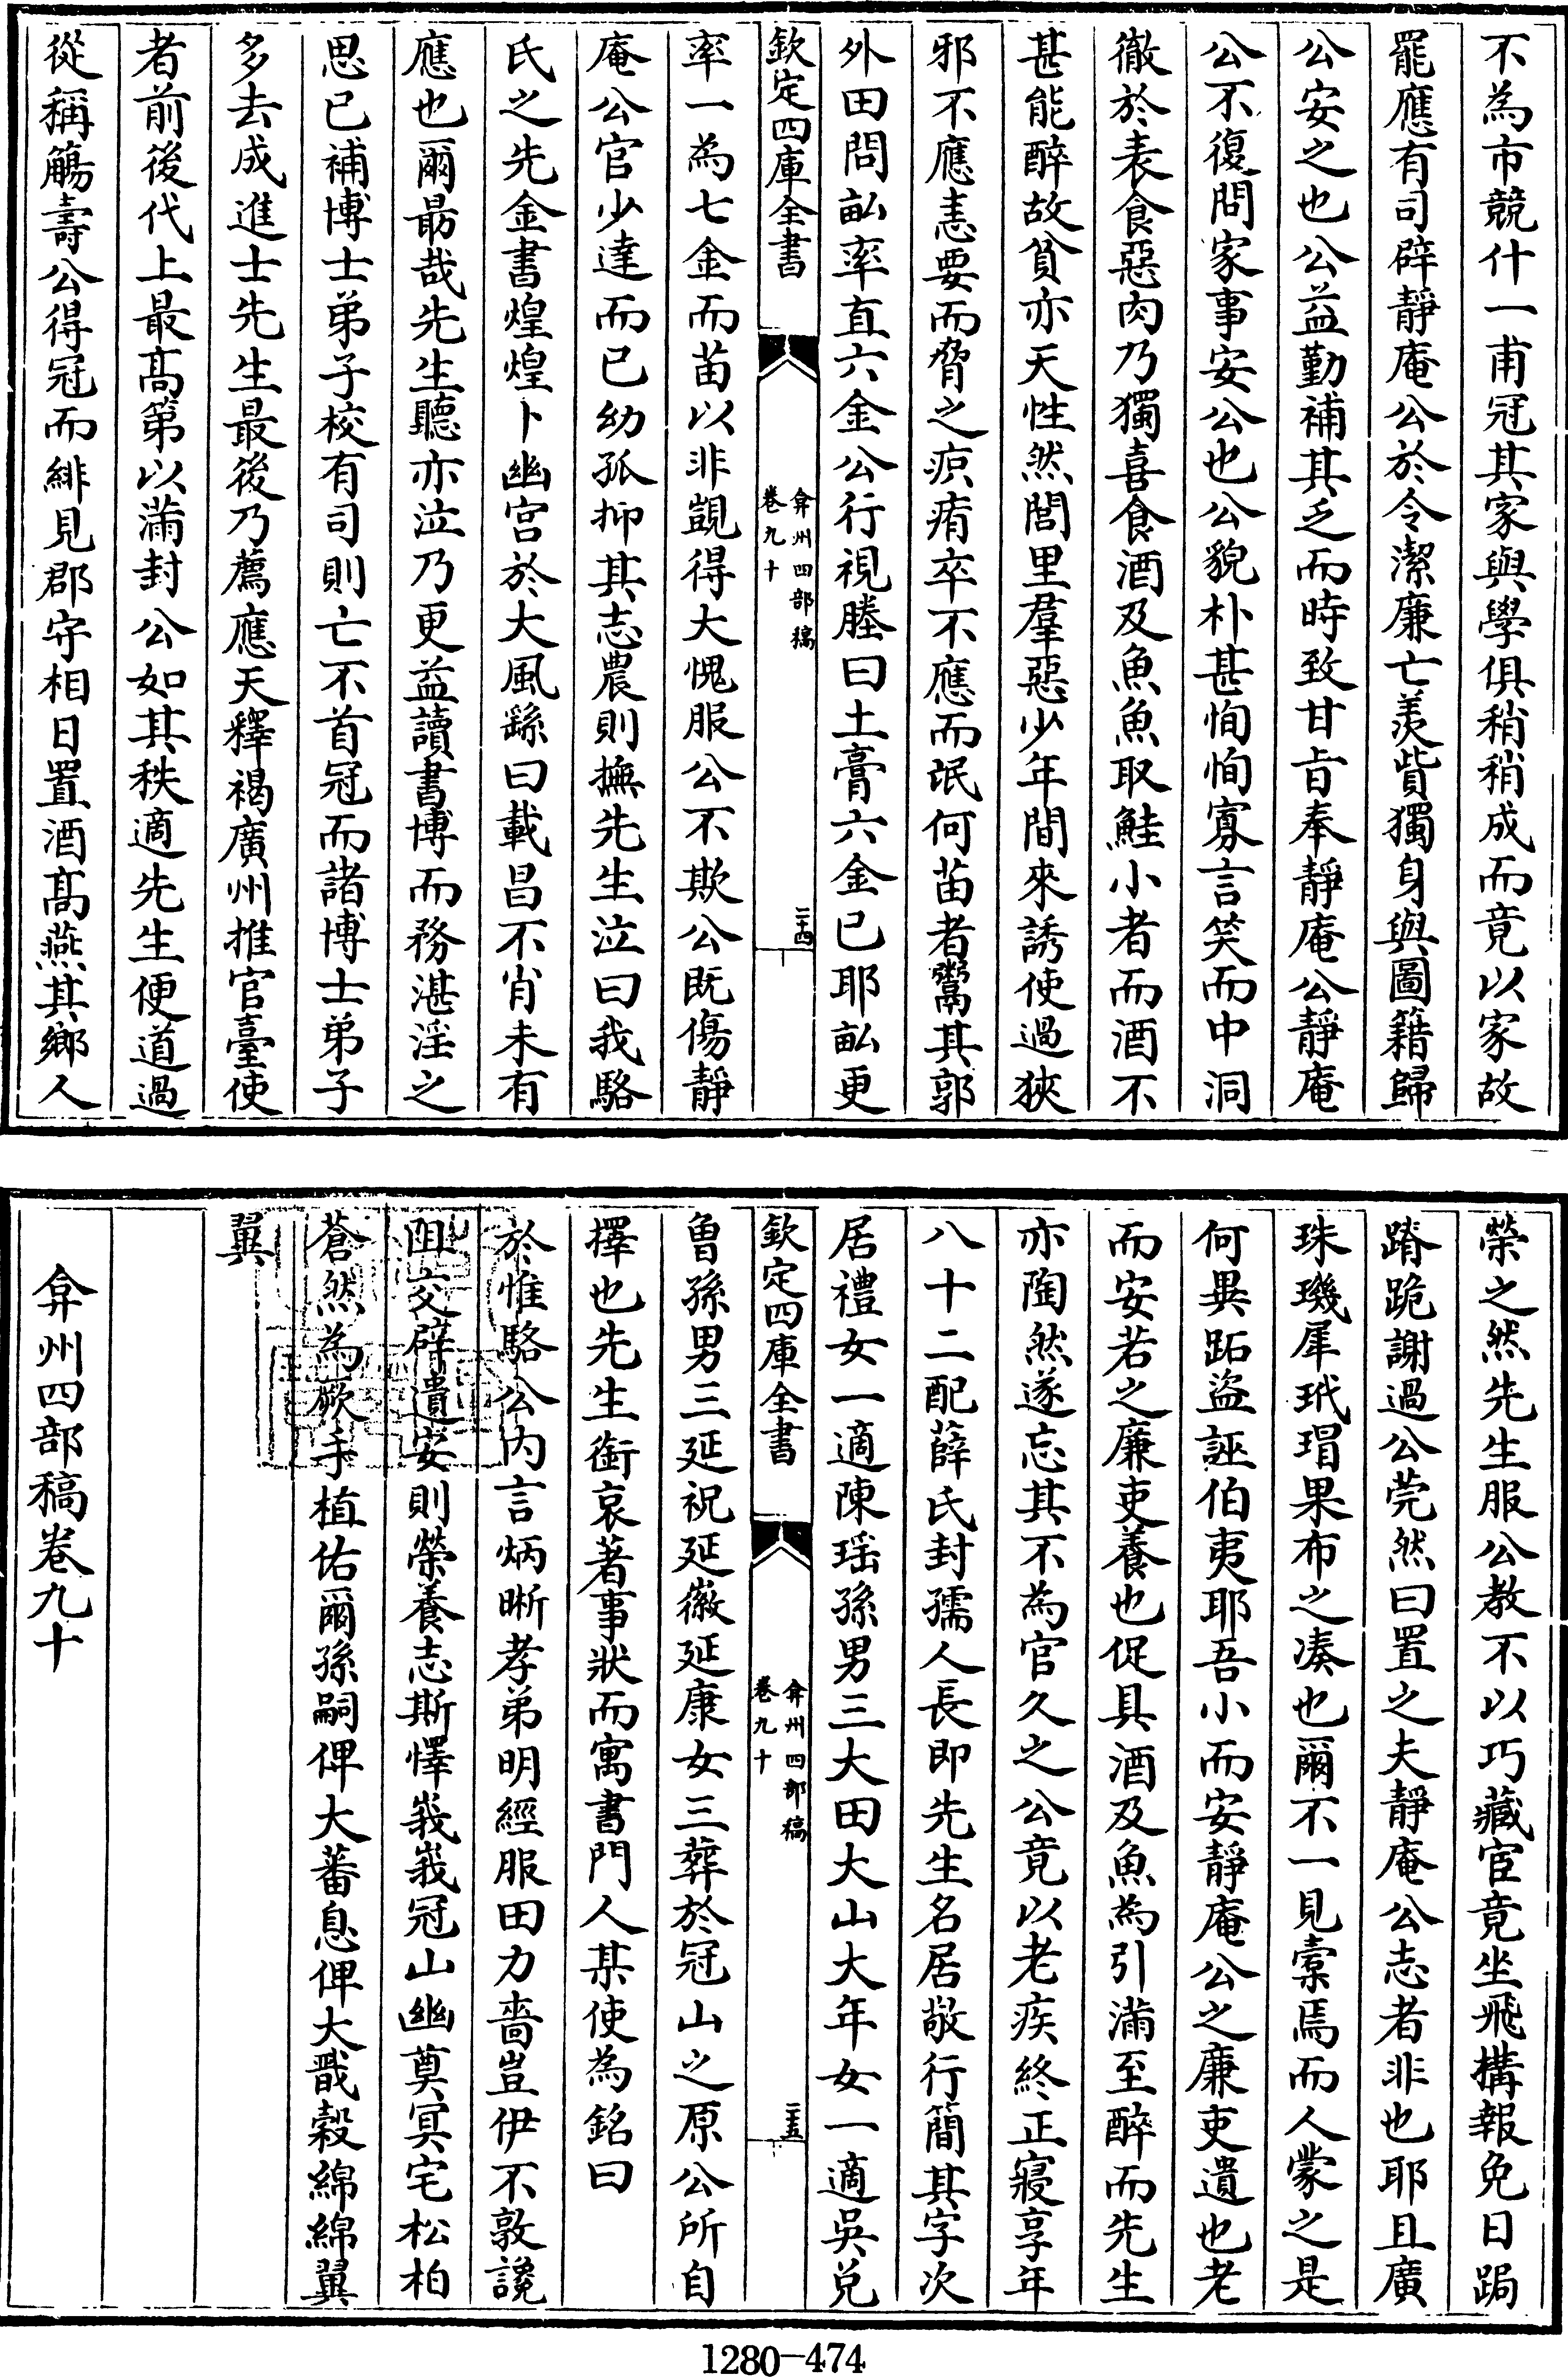 不為市競什一甫冠其家與學俱稍稍成而竟以家故
罷應有司辟靜庵公於令潔廉亡羨貲獨身與圖籍歸
公安之也公益勤補其乏而時致甘旨奉靜庵公靜庵
公不復問家事安公也公貌朴甚恂恂寡言笑而中洞
徹於表食惡肉乃獨喜食酒及魚魚取鮭小者而酒不
甚能醉故貧亦天性然閭里羣惡少年間來誘使過狹
邪不應恚要而脅之疻痏卒不應而泯何苗者鬻其郭
外田問畝率直六金公行視塍曰土膏六金已耶畝更
欽定四庫全書
弇州四部稿
卷九十
二十四
率一為七金而苗以非覬得大愧服公不欺公既傷靜
庵公官少達而已幼孤抑其志農則撫先生泣曰我駱
氏之先金書煌煌卜幽宫於大風繇曰載昌不肖未有
應也爾勗哉先生聽亦泣乃更益讀書博而務湛淫之
思已補博士弟子校有司則亡不首冠而諸博士弟子
多去成進士先生最後乃薦應天釋褐廣州推官臺使
者前後代上最髙第以滿封公如其秩適先生便道過
從稱觴壽公得冠而緋見郡守相日置酒髙燕其鄉人
榮之然先生服公教不以巧藏宦竟坐飛構報免日跼
蹐跪謝過公莞然曰置之夫靜庵公志者非也耶且廣
珠璣犀玳瑁果布之湊也爾不一見槖焉而人蒙之是
何異跖盜誣伯夷耶吾小而安靜庵公之廉吏遺也老
而安若之廉吏養也促具酒及魚為引滿至醉而先生
亦陶然遂忘其不為官久之公竟以老疾終正寢享年
八十二配薛氏封孺人長即先生名居敬行簡其字次
居禮女一適陳瑶孫男三大田大山大年女一適吳兌
欽定四庫全書
弇州四部稿
卷九十
二十五
曽孫男三延祝延徽延康女三葬於冠山之原公所自
擇也先生銜哀著事狀而寓書門人某使為銘曰
於惟駱公内言炳晰孝弟明經服田力嗇豈伊不敦讒
阻交辟遺安則榮養志斯懌峩峩冠山幽奠冥宅松柏
蒼然為厥手植佑爾孫嗣俾大蕃息俾大戩穀綿綿翼
翼
弇州四部稿卷九十
1280-474